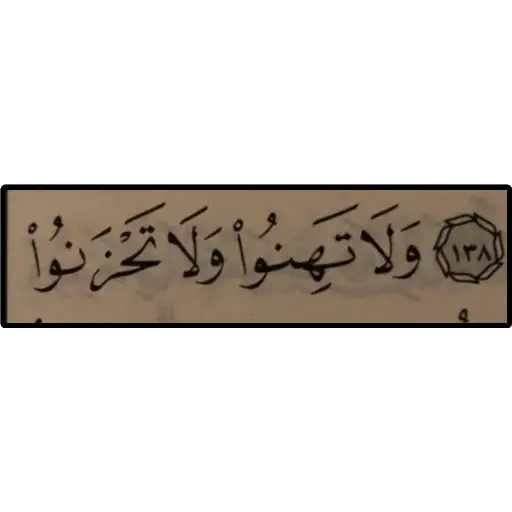 ۝١٣٨ وَلَا تَهِنُوا۟ وَلَا تَحْزَنُوا۟